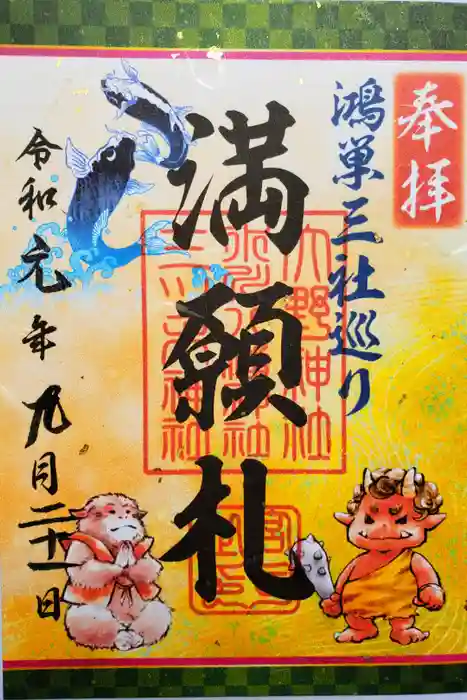 奉拝
鴻巣三社巡り
大野神社
満願札
令和元年九月二十一日